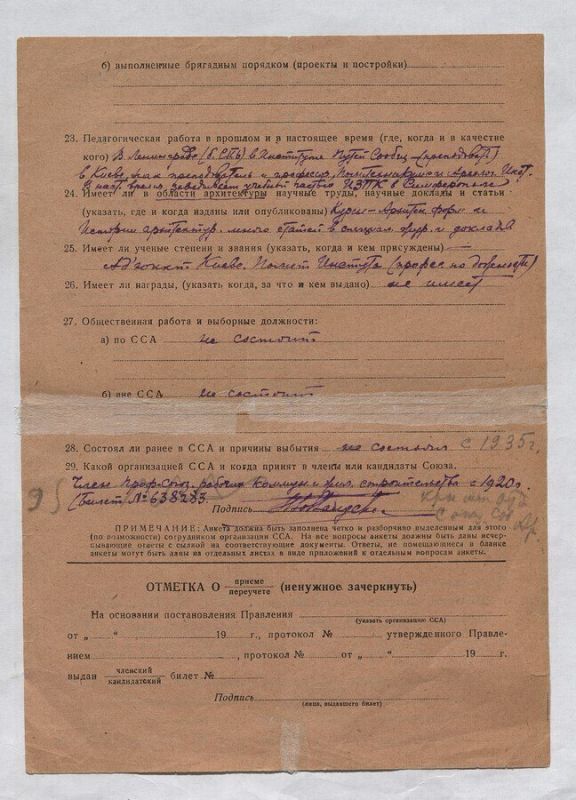 б) выполненные бригадным порядком (проекты и постройки)
23. Педагогическая работа в прошлом и в настоящее время (где, когда и в качестве
кого) В Ленинграде (б. СПБ) в Институте Путей Сообщ (преподават)
в Киеве, как преподаватель и профессор, Политехнического и Археол. Инст.
В наст. время заведывает учебной частью ИЗПК в Симферополе
24. Имеет ли в области архитектуры научные труды, научные доклады и статьи
(указать, где и когда изданы или опубликованы) Курсы – Архитек форм и
Истории архитектур. много статей в специал. журн. и доклада
25. Имеет ли ученые степени и звания (указать, когда и кем присуждены) —
Ад'юнкт Киевс. Полит Института (професс по должности)
26. Имеет ли награды, (указать когда, за что и кем выдано) не имеет
27. Общественная работа и выборные должности:
а) по ССА не состоит
б) вне ССА не состоит
28. Состоял ли ранее в ССА и причины выбытия не состоял с 1935 г.
29. Какой организацией ССА и когда принят в члены или кандидаты Союза.
Член Профсоюз. рабочих Коммун и жил. строительства с 1920 г.
(билет) № 638283.
95
Подпись
П Р И М Е Ч А Н И Е : Анкета должна быть заполнена четко и разборчиво выделенным для этого
(по возможности) сотрудником организации ССА. На все вопросы анкеты должны быть даны исчер-
пывающие ответы с ссылкой на соответствующие документы. Ответы, не помещающиеся в бланке
анкеты могут быть даны на отдельных листах в виде приложений к отдельным вопросам анкеты.
ОТМЕТКА О приеме переучете (ненужное зачеркнуть)
На основании постановления Правления
(указать организацию ССА)
от „ “ , 19 г., протокол № утвержденного Правле-
нием , протокол № от „ “ 19 г.
выдан членский кандидатский билет №
Подпись
(лица, выдавшего билет)